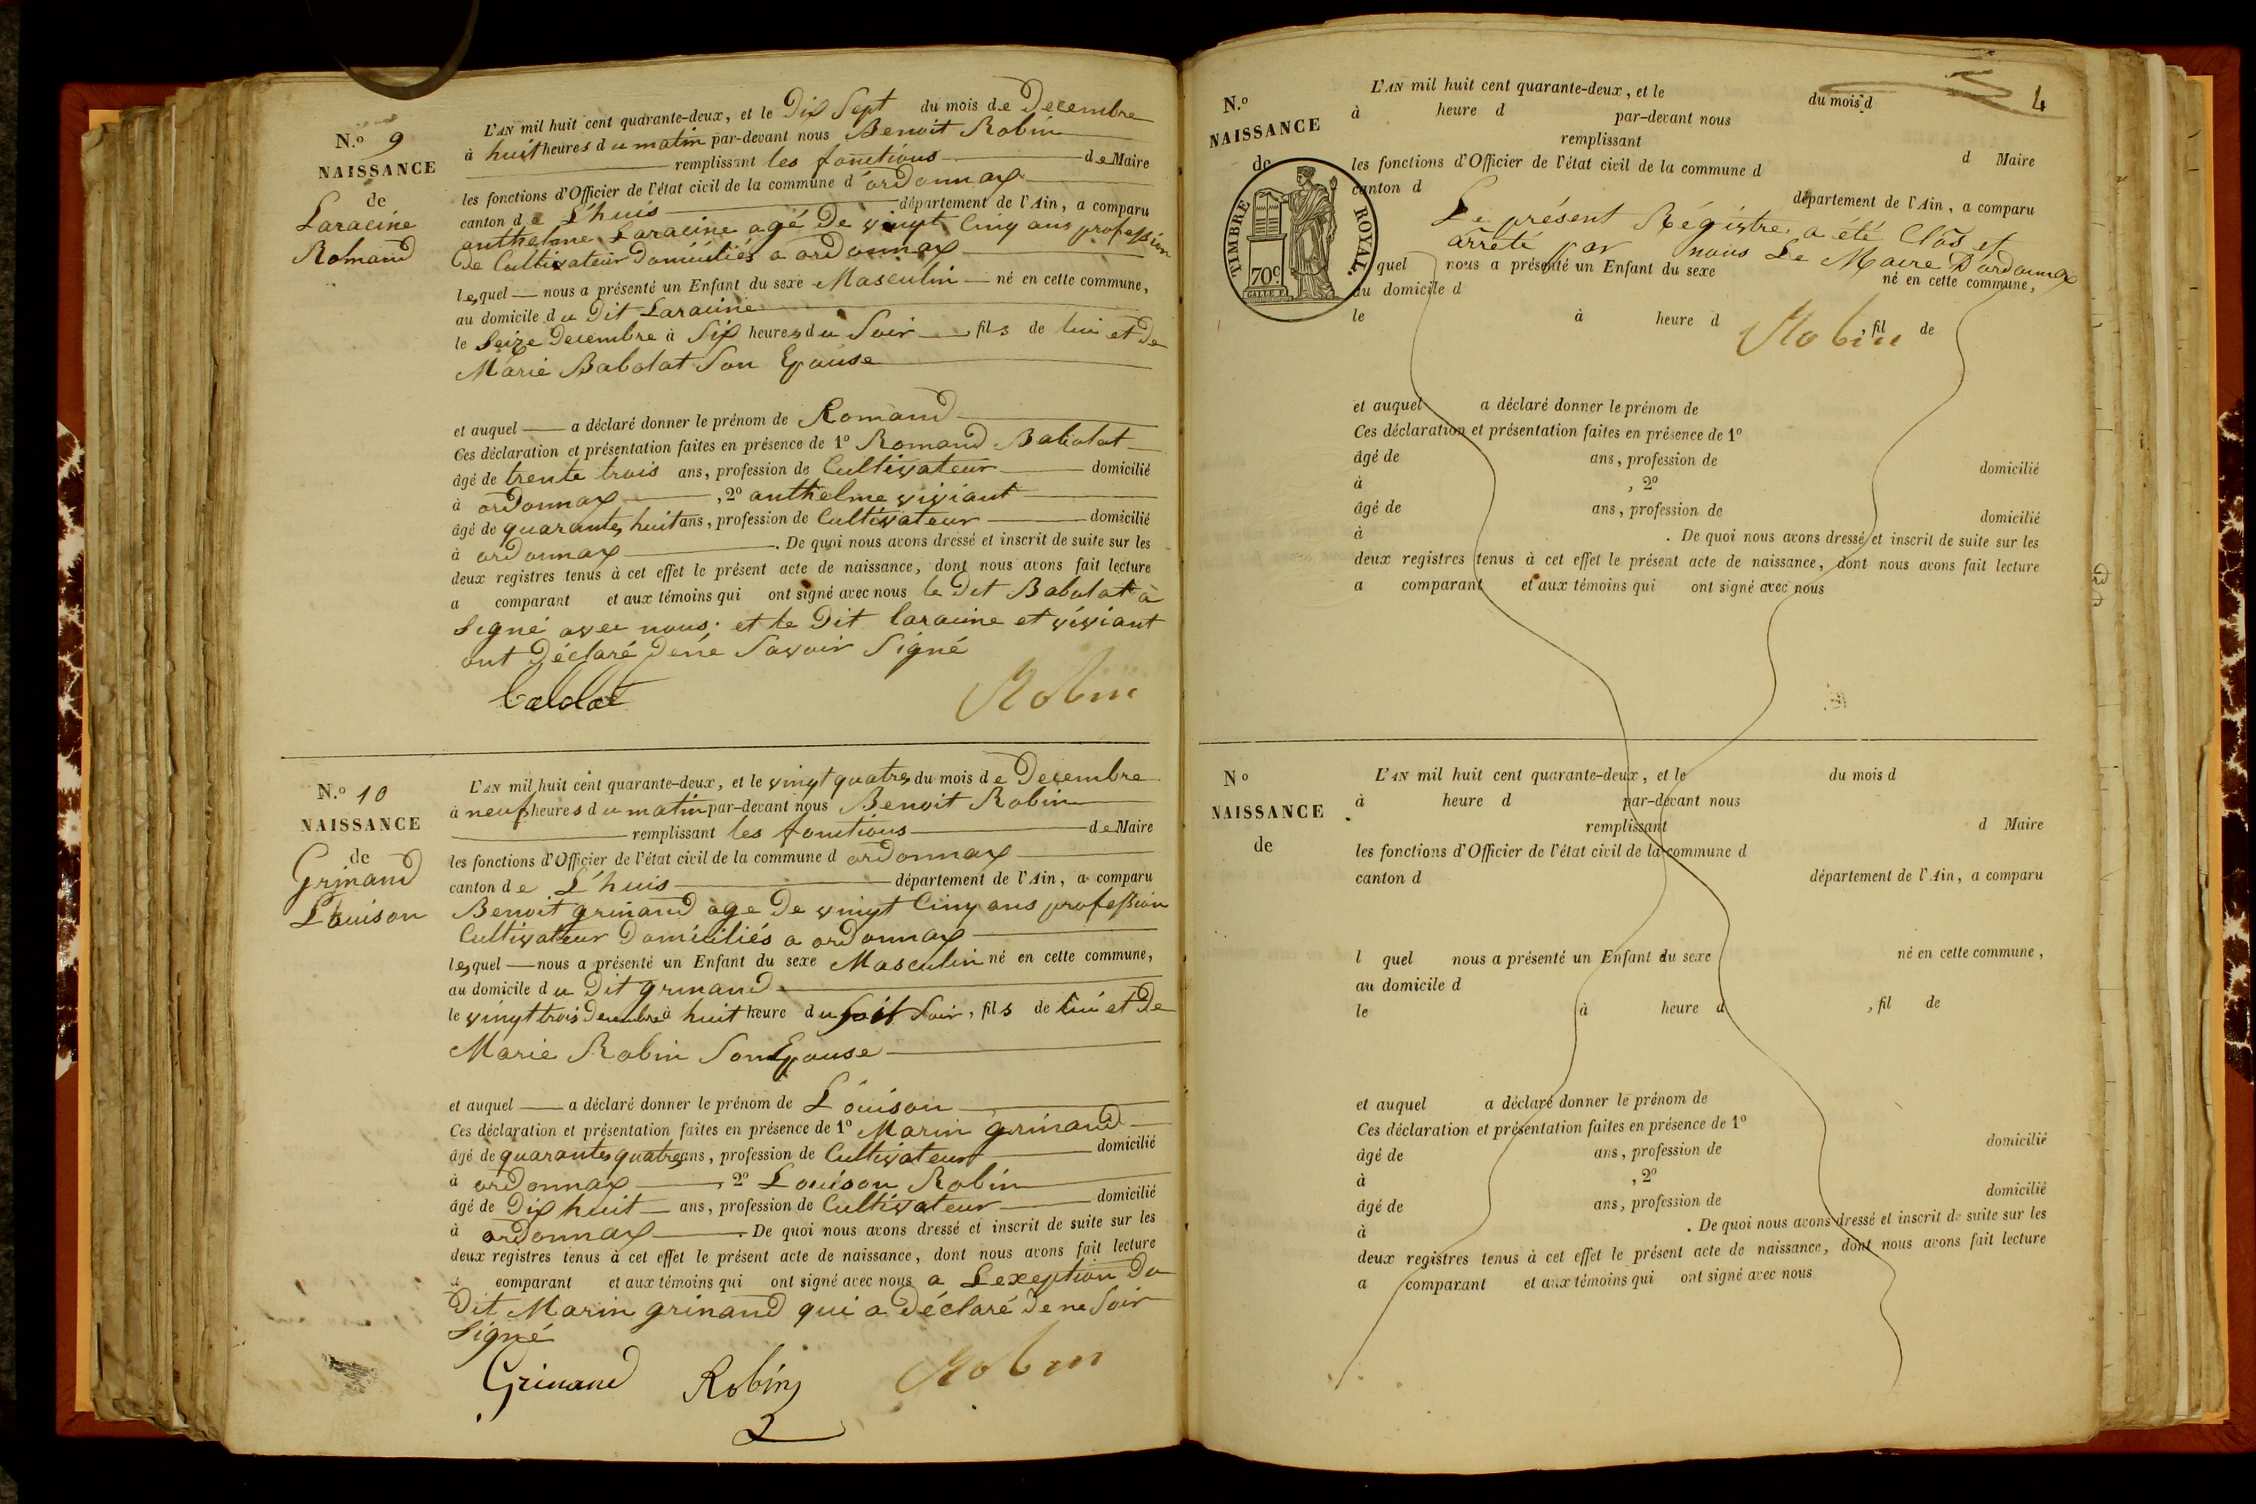 N.º 9
NAISSANCE
de
Laracine
Romand
L'AN mil huit cent quarante-deux, et le Dix Sept du mois de Decembre
à huit heures du matin par-devant nous Benoit Robin
remplissant les fonctions de Maire
les fonctions d'Officier de l'état civil de la commune d'ordonnax
canton de L'huis département de l'Ain, a comparu
anthelme Laracine agé de vingt Cinq ans profession
de Cultivateur domiciliés a ordonnax
lequel nous a présenté un Enfant du sexe Masculin né en cette commune,
au domicile du Dit Laracine
le Seize Decembre à Six heures du Soir fils de lui et de
Marie Babolat Son Epouse
et auquel a déclaré donner le prénom de Romand
Ces déclaration et présentation faites en présence de 1º Romand Babolat
âgé de trente trois ans, profession de Cultivateur domicilié
à ordonnax, 2º anthelme viviant
âgé de quarante huit ans, profession de Cultivateur domicilié
à ordonnax. De quoi nous avons dressé et inscrit de suite sur les
deux registres tenus à cet effet le présent acte de naissance, dont nous avons fait lecture
a comparant et aux témoins qui ont signé avec nous le Dit Babolat à
Signé avec nous. et le Dit laracine et viviant
ont Déclaré de né Savoir Signé
Robin
N.º 10
NAISSANCE
de
Grinand
Louison
L'AN mil huit cent quarante-deux, et le vingt quatre du mois de Decembre
à neuf heures du matin par-devant nous Benoit Robin
remplissant les fonctions de Maire
les fonctions d'Officier de l'état civil de la commune d ordonnax
canton de L'huis département de l'Ain, a comparu
Benoit grinand age De vingt Cinq ans profession
Cultivateur Domiciliés a ordonnax
lequel nous a présenté un Enfant du sexe Masculin né en cette commune,
au domicile du Dit grinand
le vingt trois Decembre à huit heure du Soir, fils de lui et De
Marie Robin Son Epouse
et auquel a déclaré donner le prénom de Louison
Ces déclaration et présentation faites en présence de 1º Marin grinand
âgé de quarante quatre ans, profession de Cultivateur domicilié
à ordonnax 2º Louison Robin
âgé de Dix huit ans, profession de Cultivateur domicilié
à ordonnax. De quoi nous avons dressé et inscrit de suite sur les
deux registres tenus à cet effet le présent acte de naissance, dont nous avons fait lecture
a comparant et aux témoins qui ont signé avec nous a Lexeption du
Dit Marin grinand qui a Déclaré De ne Soir
Signé
Grinand Robin Robin
4
N.º
NAISSANCE
de
TIMBRE ROYAL.
70c
L'AN mil huit cent quarante-deux, et le du mois d
à heure d par-devant nous
remplissant d Maire
les fonctions d'Officier de l'état civil de la commune d
canton d département de l'Ain, a comparu
Le présent Régistre a été Clos et
arrêté par nous Le Maire D'ordonnax
quel nous a présenté un Enfant du sexe né en cette commune,
au domicile d
le à heure d , fil de
Robin
et auquel a déclaré donner le prénom de
Ces déclaration et présentation faites en présence de 1º
âgé de ans, profession de domicilié
à , 2º
âgé de ans, profession de domicilié
à . De quoi nous avons dressé et inscrit de suite sur les
deux registres tenus à cet effet le présent acte de naissance, dont nous avons fait lecture
a comparant et aux témoins qui ont signé avec nous
Nº
NAISSANCE
de
L'AN mil huit cent quarante-deux, et le du mois d
à heure d par-devant nous
remplissant d Maire
les fonctions d'Officier de l'état civil de la commune d
canton d département de l'Ain, a comparu
l quel nous a présenté un Enfant du sexe né en cette commune,
au domicile d
le à heure d , fil de
et auquel a déclaré donner le prénom de
Ces déclaration et présentation faites en présence de 1º
âgé de ans, profession de domicilié
à , 2º
âgé de ans, profession de domicilié
à . De quoi nous avons dressé et inscrit de suite sur les
deux registres tenus à cet effet le présent acte de naissance, dont nous avons fait lecture
a comparant et aux témoins qui ont signé avec nous